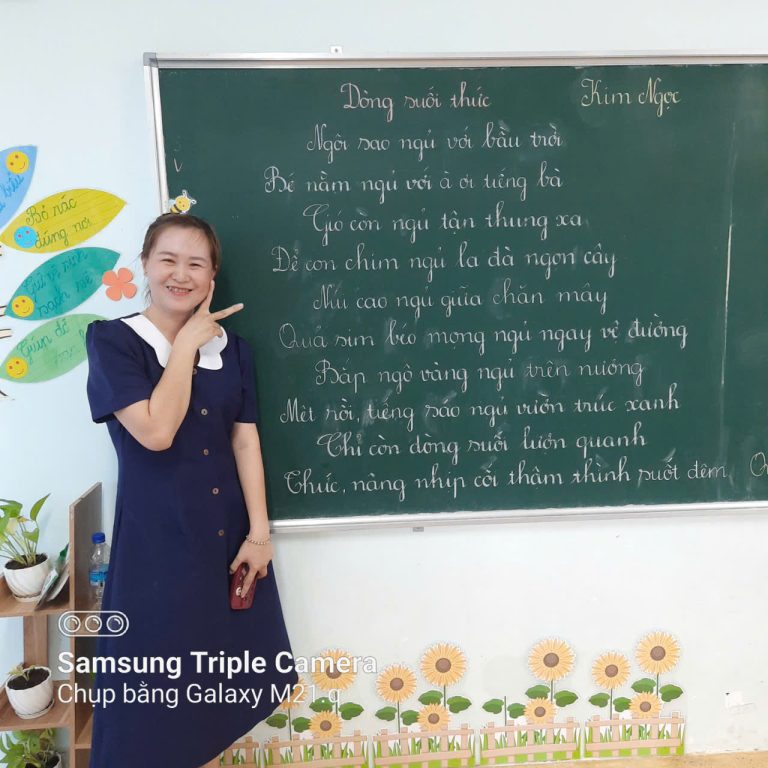 Dòng suối thức
Kim Ngọc
Ngôi sao ngủ với bầu trời
Bé nằm ngủ với à ơi tiếng bà
Gió còn ngủ tận thung xa
Để con chim ngủ la đà ngọn cây
Núi cao ngủ giữa chăn mây
Quả sim béo mọng ngủ ngay vệ đường
Bắp ngô vàng ngủ trên nương
Mệt rồi, tiếng sáo ngủ vườn trúc xanh
Chỉ còn dòng suối lượn quanh
Thức, nâng nhịp cối thậm thình suốt đêm
Bỏ rác
đúng nơi
Samsung Triple Camera
Chụp bằng Galaxy M21 q